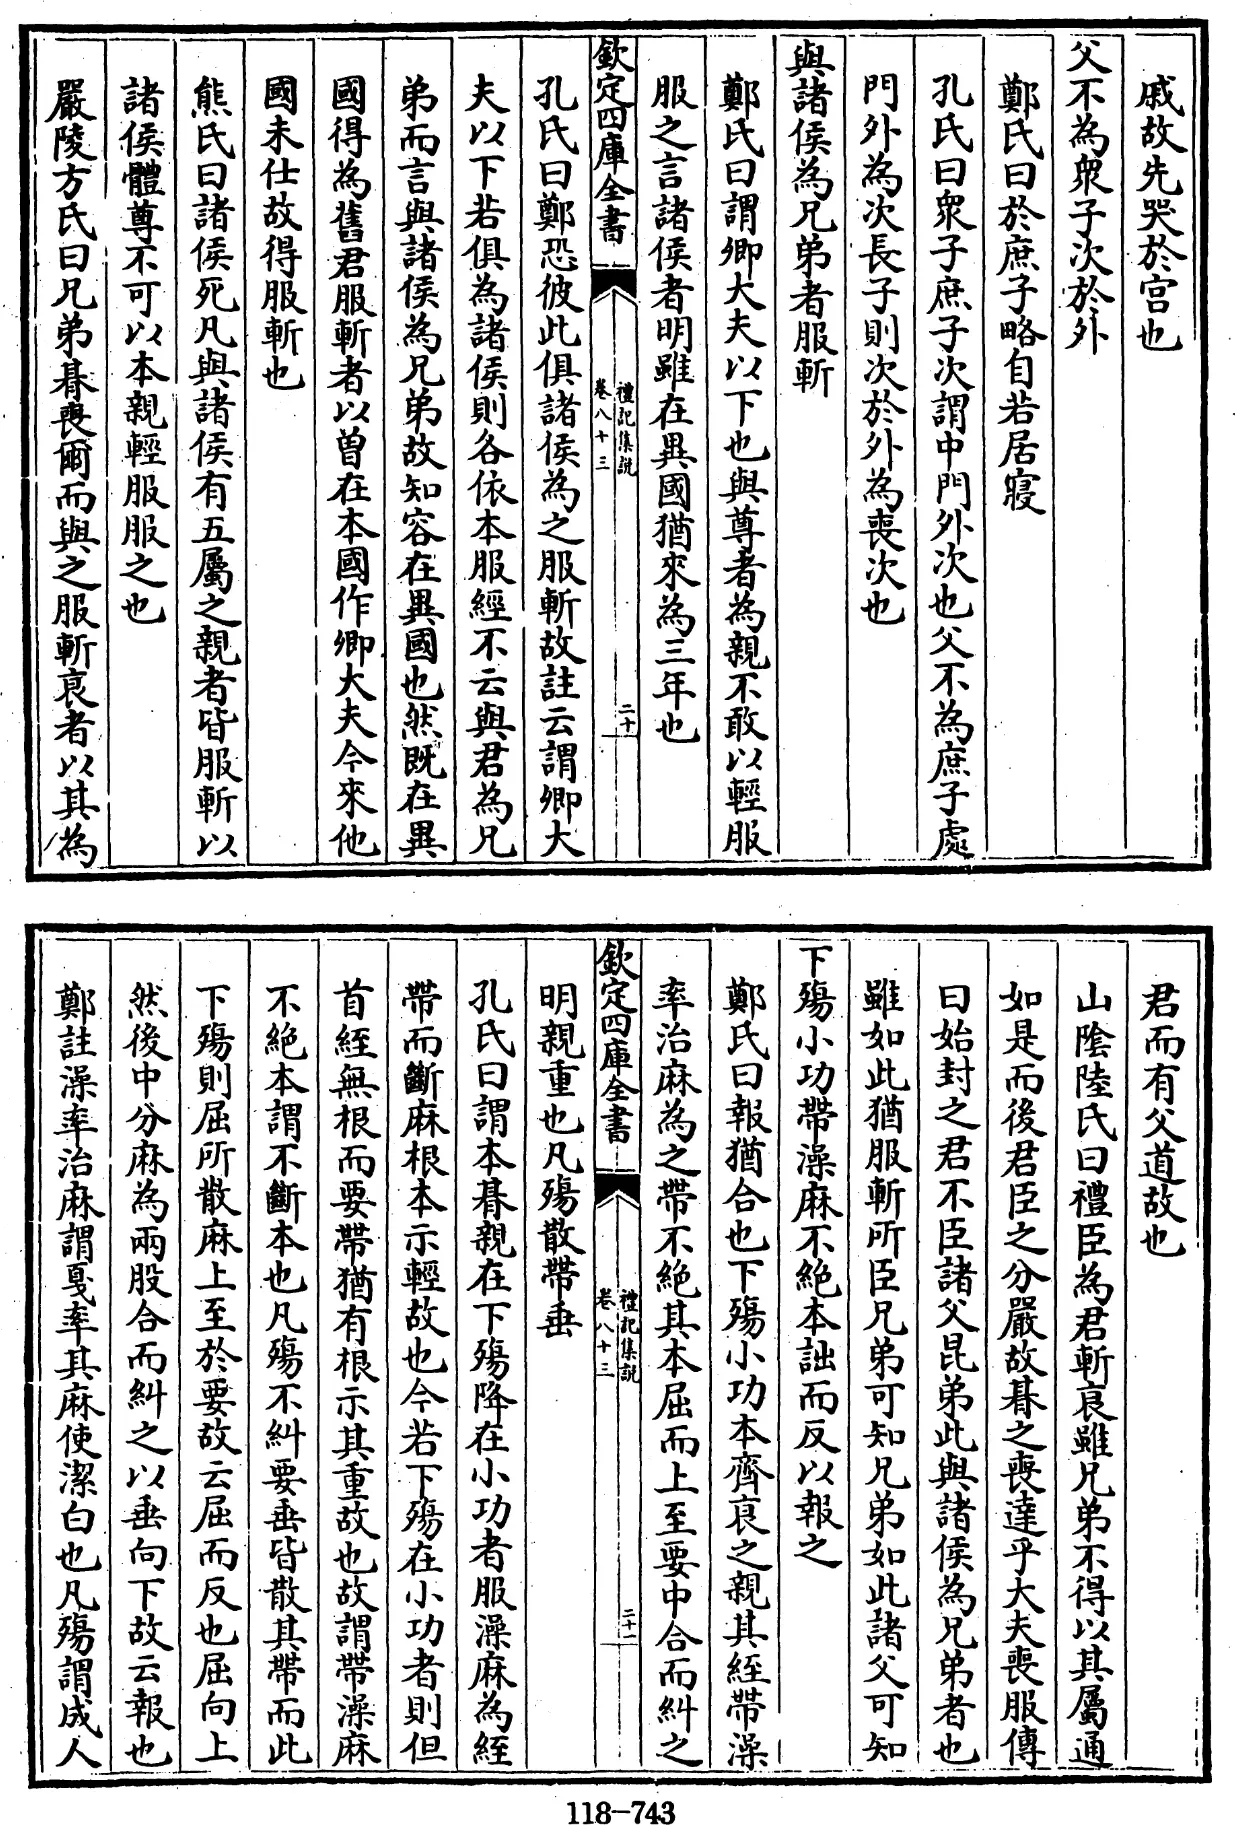 戚故先哭於宫也
父不為衆子次於外
鄭氏曰於庶子略自若居寢
孔氏曰衆子庶子次謂中門外次也父不為庶子處
門外為次長子則次於外為喪次也
與諸侯為兄弟者服斬
鄭氏曰謂卿大夫以下也與尊者為親不敢以輕服
服之言諸侯者明雖在異國猶來為三年也
欽定四庫全書
禮記集說
卷八十三
二十
孔氏曰鄭恐彼此俱諸侯為之服斬故註云謂卿大
夫以下若俱為諸侯則各依本服經不云與君為兄
弟而言與諸侯為兄弟故知容在異國也然既在異
國得為舊君服斬者以曾在本國作卿大夫今來他
國未仕故得服斬也
熊氏曰諸侯死凡與諸侯有五屬之親者皆服斬以
諸侯體尊不可以本親輕服服之也
嚴陵方氏曰兄弟朞喪爾而與之服斬哀者以其為
君而有父道故也
山陰陸氏曰禮臣為君斬哀雖兄弟不得以其屬通
如是而後君臣之分嚴故朞之喪達乎大夫喪服傳
曰始封之君不臣諸父昆弟此與諸侯為兄弟者也
雖如此猶服斬所臣兄弟可知兄弟如此諸父可知
下殤小功帶澡麻不絶本詘而反以報之
鄭氏曰報猶合也下殤小功本齊哀之親其絰帶澡
率治麻為之帶不絶其本屈而上至要中合而糾之
欽定四庫全書
禮記集說
卷八十三
二十一
明親重也凡殤散帶垂
孔氏曰謂本朞親在下殤降在小功者服澡麻為絰
帶而斷麻根本示輕故也今若下殤在小功者則但
首絰無根而要帶猶有根示其重故也故謂帶澡麻
不絶本謂不斷本也凡殤不糾要垂皆散其帶而此
下殤則屈所散麻上至於要故云屈而反也屈向上
然後中分麻為兩股合而糾之以垂向下故云報也
鄭註澡率治麻謂戛率其麻使潔白也凡殤謂成人
118-743